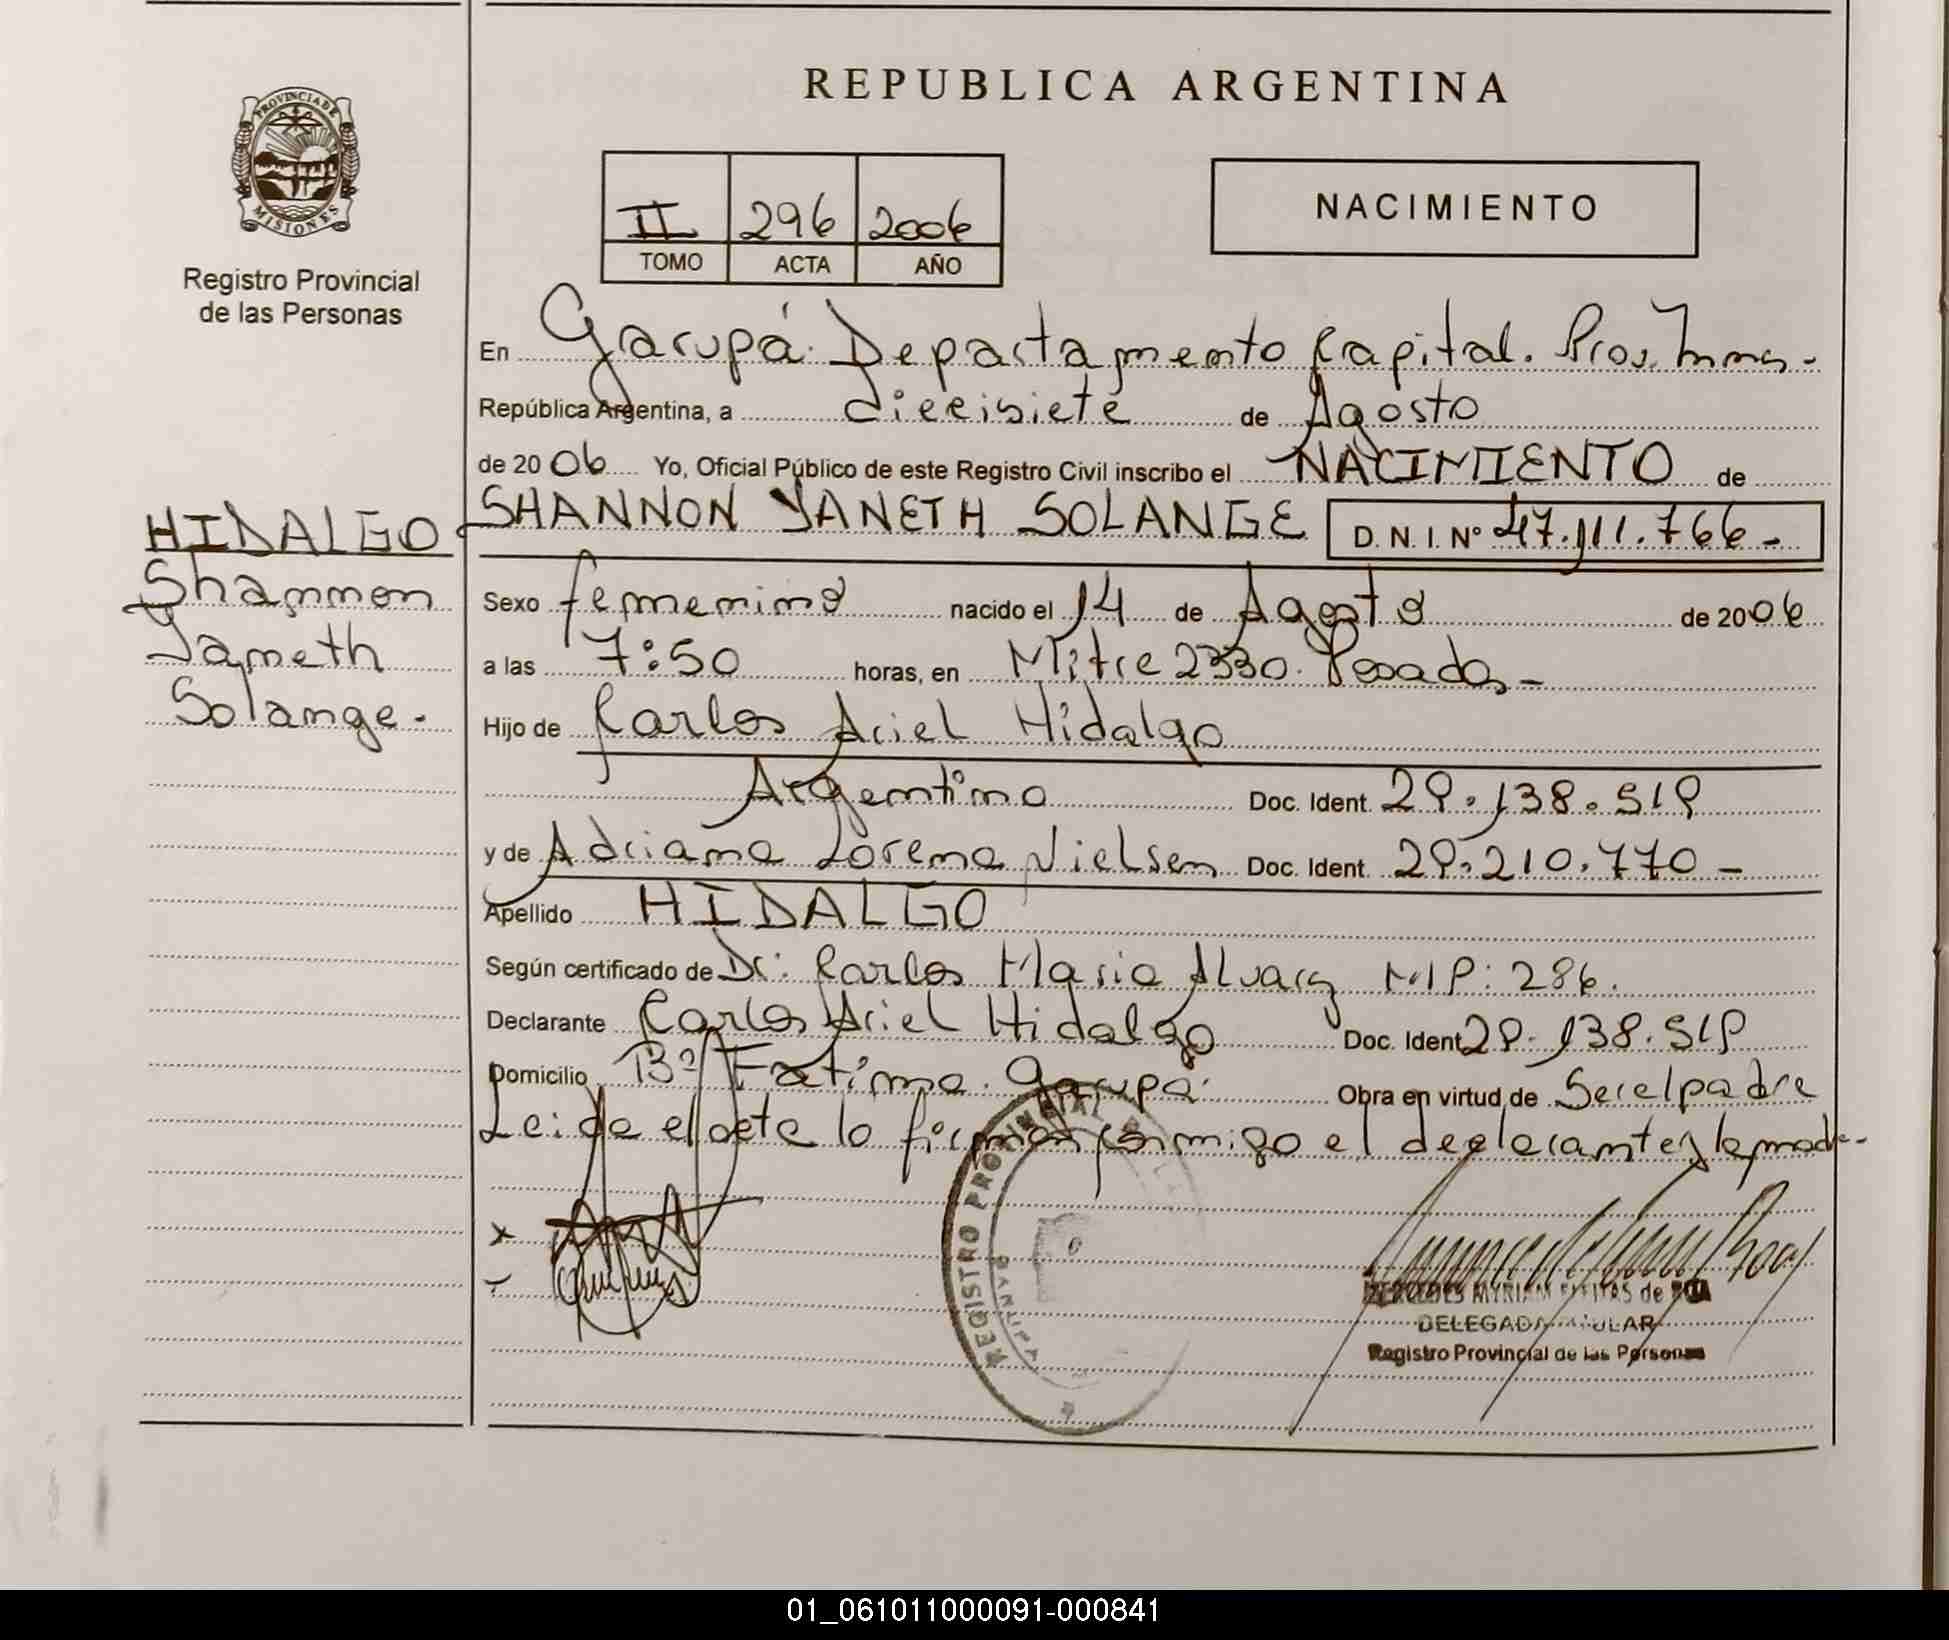 REPUBLICA ARGENTINA
PROVINCIA DE
MISIONES
Registro Provincial
de las Personas
II 296 2006
TOMO ACTA AÑO
NACIMIENTO
En Garupá. Departamento Capital. Prov. Mnes-
República Argentina, a diecisiete de Agosto
de 2006 Yo, Oficial Público de este Registro Civil inscribo el NACIMIENTO de
SHANNON YANETH SOLANGE D. N. I. Nº 47.111.766-
HIDALGO
Shannon
Yaneth
Solange-
Sexo femenino nacido el 14 de Agosto de 2006
a las 7:50 horas, en Mitre 2330. Posadas-
Hijo de Carlos Ariel Hidalgo
Argentino Doc. Ident. 29.138.519
y de Adriana Lorena Nielsen Doc. Ident. 29.210.770-
Apellido HIDALGO
Según certificado de Dr: Carlos Maria Alvarez M.P: 286.
Declarante Carlos Ariel Hidalgo Doc. Ident. 29.138.519
Domicilio Bº Fatima. Garupá. Obra en virtud de Ser el padre
Leida el acta lo firman conmigo el declarante y la madre-
REGISTRO PROVINCIAL DE LA
MERCEDES MYRIAM FLEITAS de
DELEGADA TITULAR
Registro Provincial de las Personas
01_061011000091-000841